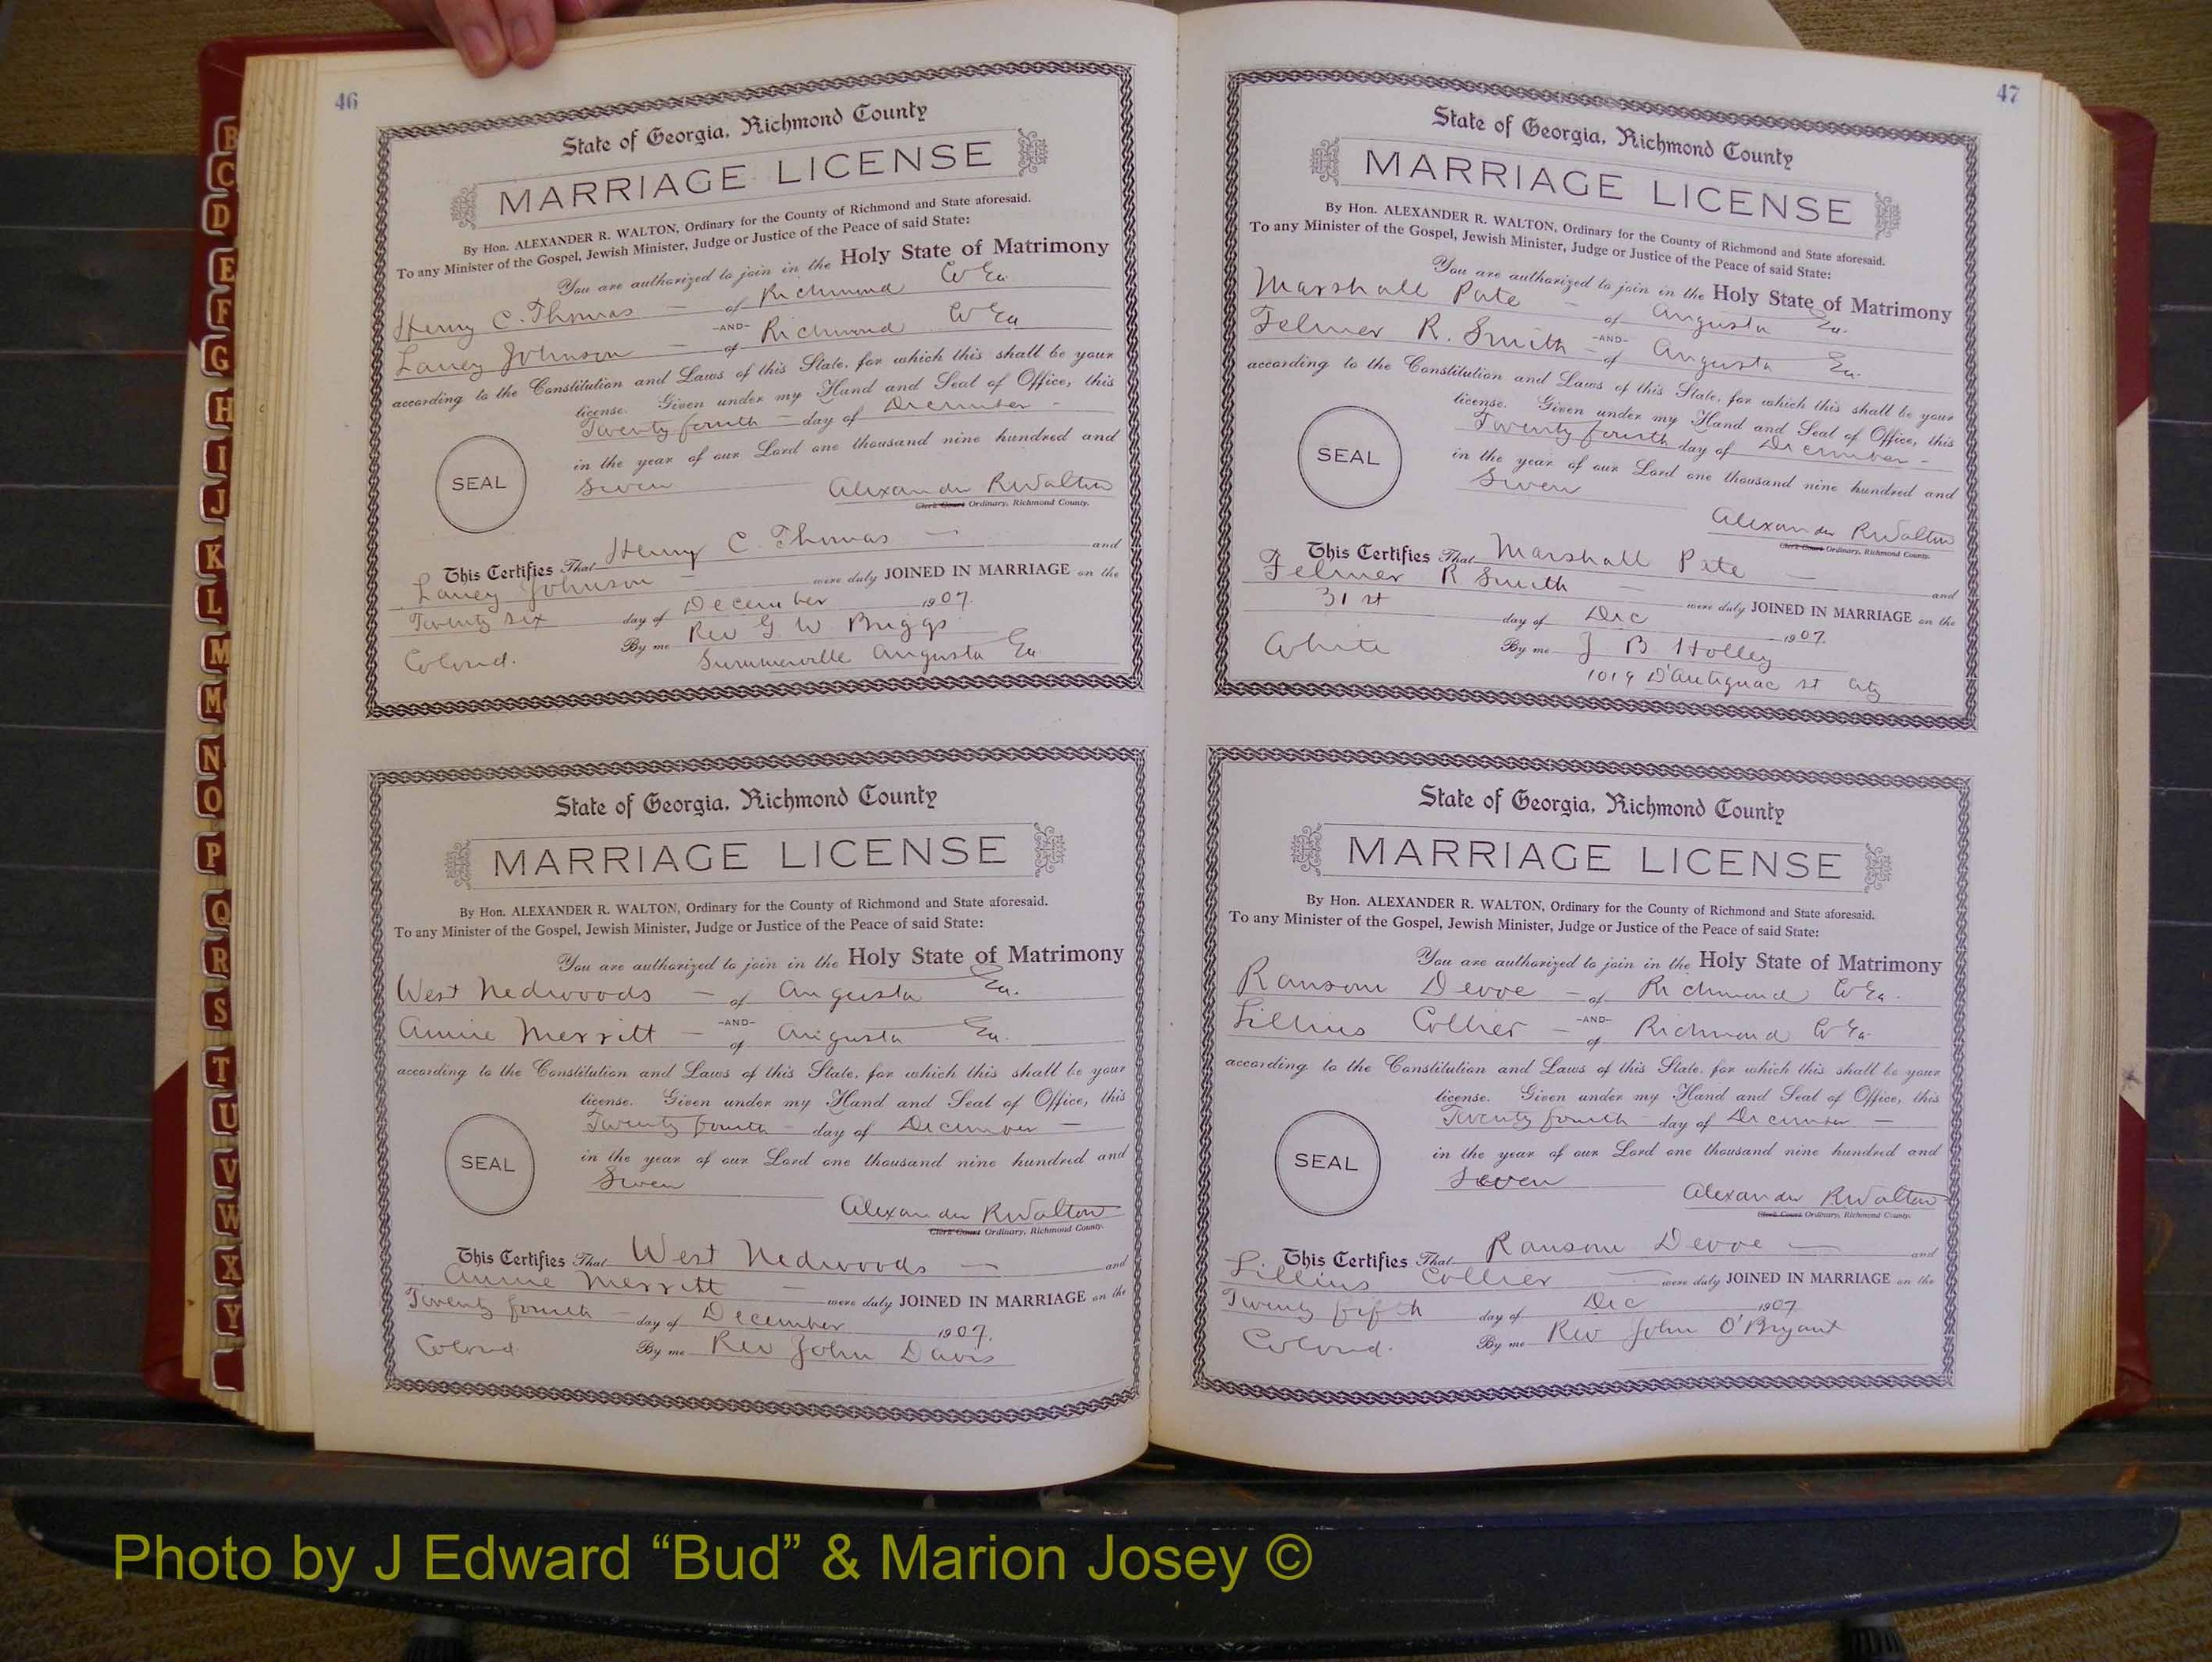 46
State of Georgia, Richmond County
MARRIAGE LICENSE
By Hon. ALEXANDER R. WALTON, Ordinary for the County of Richmond and State aforesaid.
To any Minister of the Gospel, Jewish Minister, Judge or Justice of the Peace of said State:
You are authorized to join in the Holy State of Matrimony
Henry C. Thomas — of Richmond Co Ga
-AND-
Laney Johnson — of Richmond Co Ga
according to the Constitution and Laws of this State, for which this shall be your
license. Given under my Hand and Seal of Office, this
Twenty fourth — day of December -
in the year of our Lord one thousand nine hundred and
Seven
SEAL
Alexander R Walton
Clerk Court Ordinary, Richmond County.
This Certifies That Henry C. Thomas — and
Laney Johnson — were duly JOINED IN MARRIAGE on the
Twenty six day of December 1907.
By me Rev G W Briggs
Colored. Summerville Augusta Ga
State of Georgia, Richmond County
MARRIAGE LICENSE
By Hon. ALEXANDER R. WALTON, Ordinary for the County of Richmond and State aforesaid.
To any Minister of the Gospel, Jewish Minister, Judge or Justice of the Peace of said State:
You are authorized to join in the Holy State of Matrimony
West Nedwoods — of Augusta Ga.
-AND-
Annie Merritt — of Augusta Ga.
according to the Constitution and Laws of this State, for which this shall be your
license. Given under my Hand and Seal of Office, this
Twenty fourth — day of December —
in the year of our Lord one thousand nine hundred and
Seven
SEAL
Alexander R Walton
Clerk Court Ordinary, Richmond County.
This Certifies That West Nedwoods — and
Annie Merritt — were duly JOINED IN MARRIAGE on the
Twenty fourth — day of December 1907.
Colored. By me Rev John Davis
47
State of Georgia, Richmond County
MARRIAGE LICENSE
By Hon. ALEXANDER R. WALTON, Ordinary for the County of Richmond and State aforesaid.
To any Minister of the Gospel, Jewish Minister, Judge or Justice of the Peace of said State:
You are authorized to join in the Holy State of Matrimony
Marshall Pate — of Augusta Ga.
-AND-
Felmer R. Smith — of Augusta Ga.
according to the Constitution and Laws of this State, for which this shall be your
license. Given under my Hand and Seal of Office, this
Twenty fourth day of December -
in the year of our Lord one thousand nine hundred and
Seven
SEAL
Alexander R Walton
Clerk Court Ordinary, Richmond County.
This Certifies That Marshall Pate — and
Felmer R Smith — were duly JOINED IN MARRIAGE on the
31 st day of Dec 1907.
White By me J B Holley
1019 D'Antignac st City
State of Georgia, Richmond County
MARRIAGE LICENSE
By Hon. ALEXANDER R. WALTON, Ordinary for the County of Richmond and State aforesaid.
To any Minister of the Gospel, Jewish Minister, Judge or Justice of the Peace of said State:
You are authorized to join in the Holy State of Matrimony
Ransom Devoe — of Richmond Co Ga.
-AND-
Lillius Collier — of Richmond Co Ga
according to the Constitution and Laws of this State, for which this shall be your
license. Given under my Hand and Seal of Office, this
Twenty fourth — day of December —
in the year of our Lord one thousand nine hundred and
Seven
SEAL
Alexander R Walton
Clerk Court Ordinary, Richmond County.
This Certifies That Ransom Devoe — and
Lillius Collier — were duly JOINED IN MARRIAGE on the
Twenty fifth day of Dec 1907
Colored. By me Rev John O'Bryant
B
C
D
E
F
G
H
I
J
K
L
M
M
N
O
P
Q
R
S
T
U
V
W
X
Y
Photo by J Edward “Bud” & Marion Josey ©